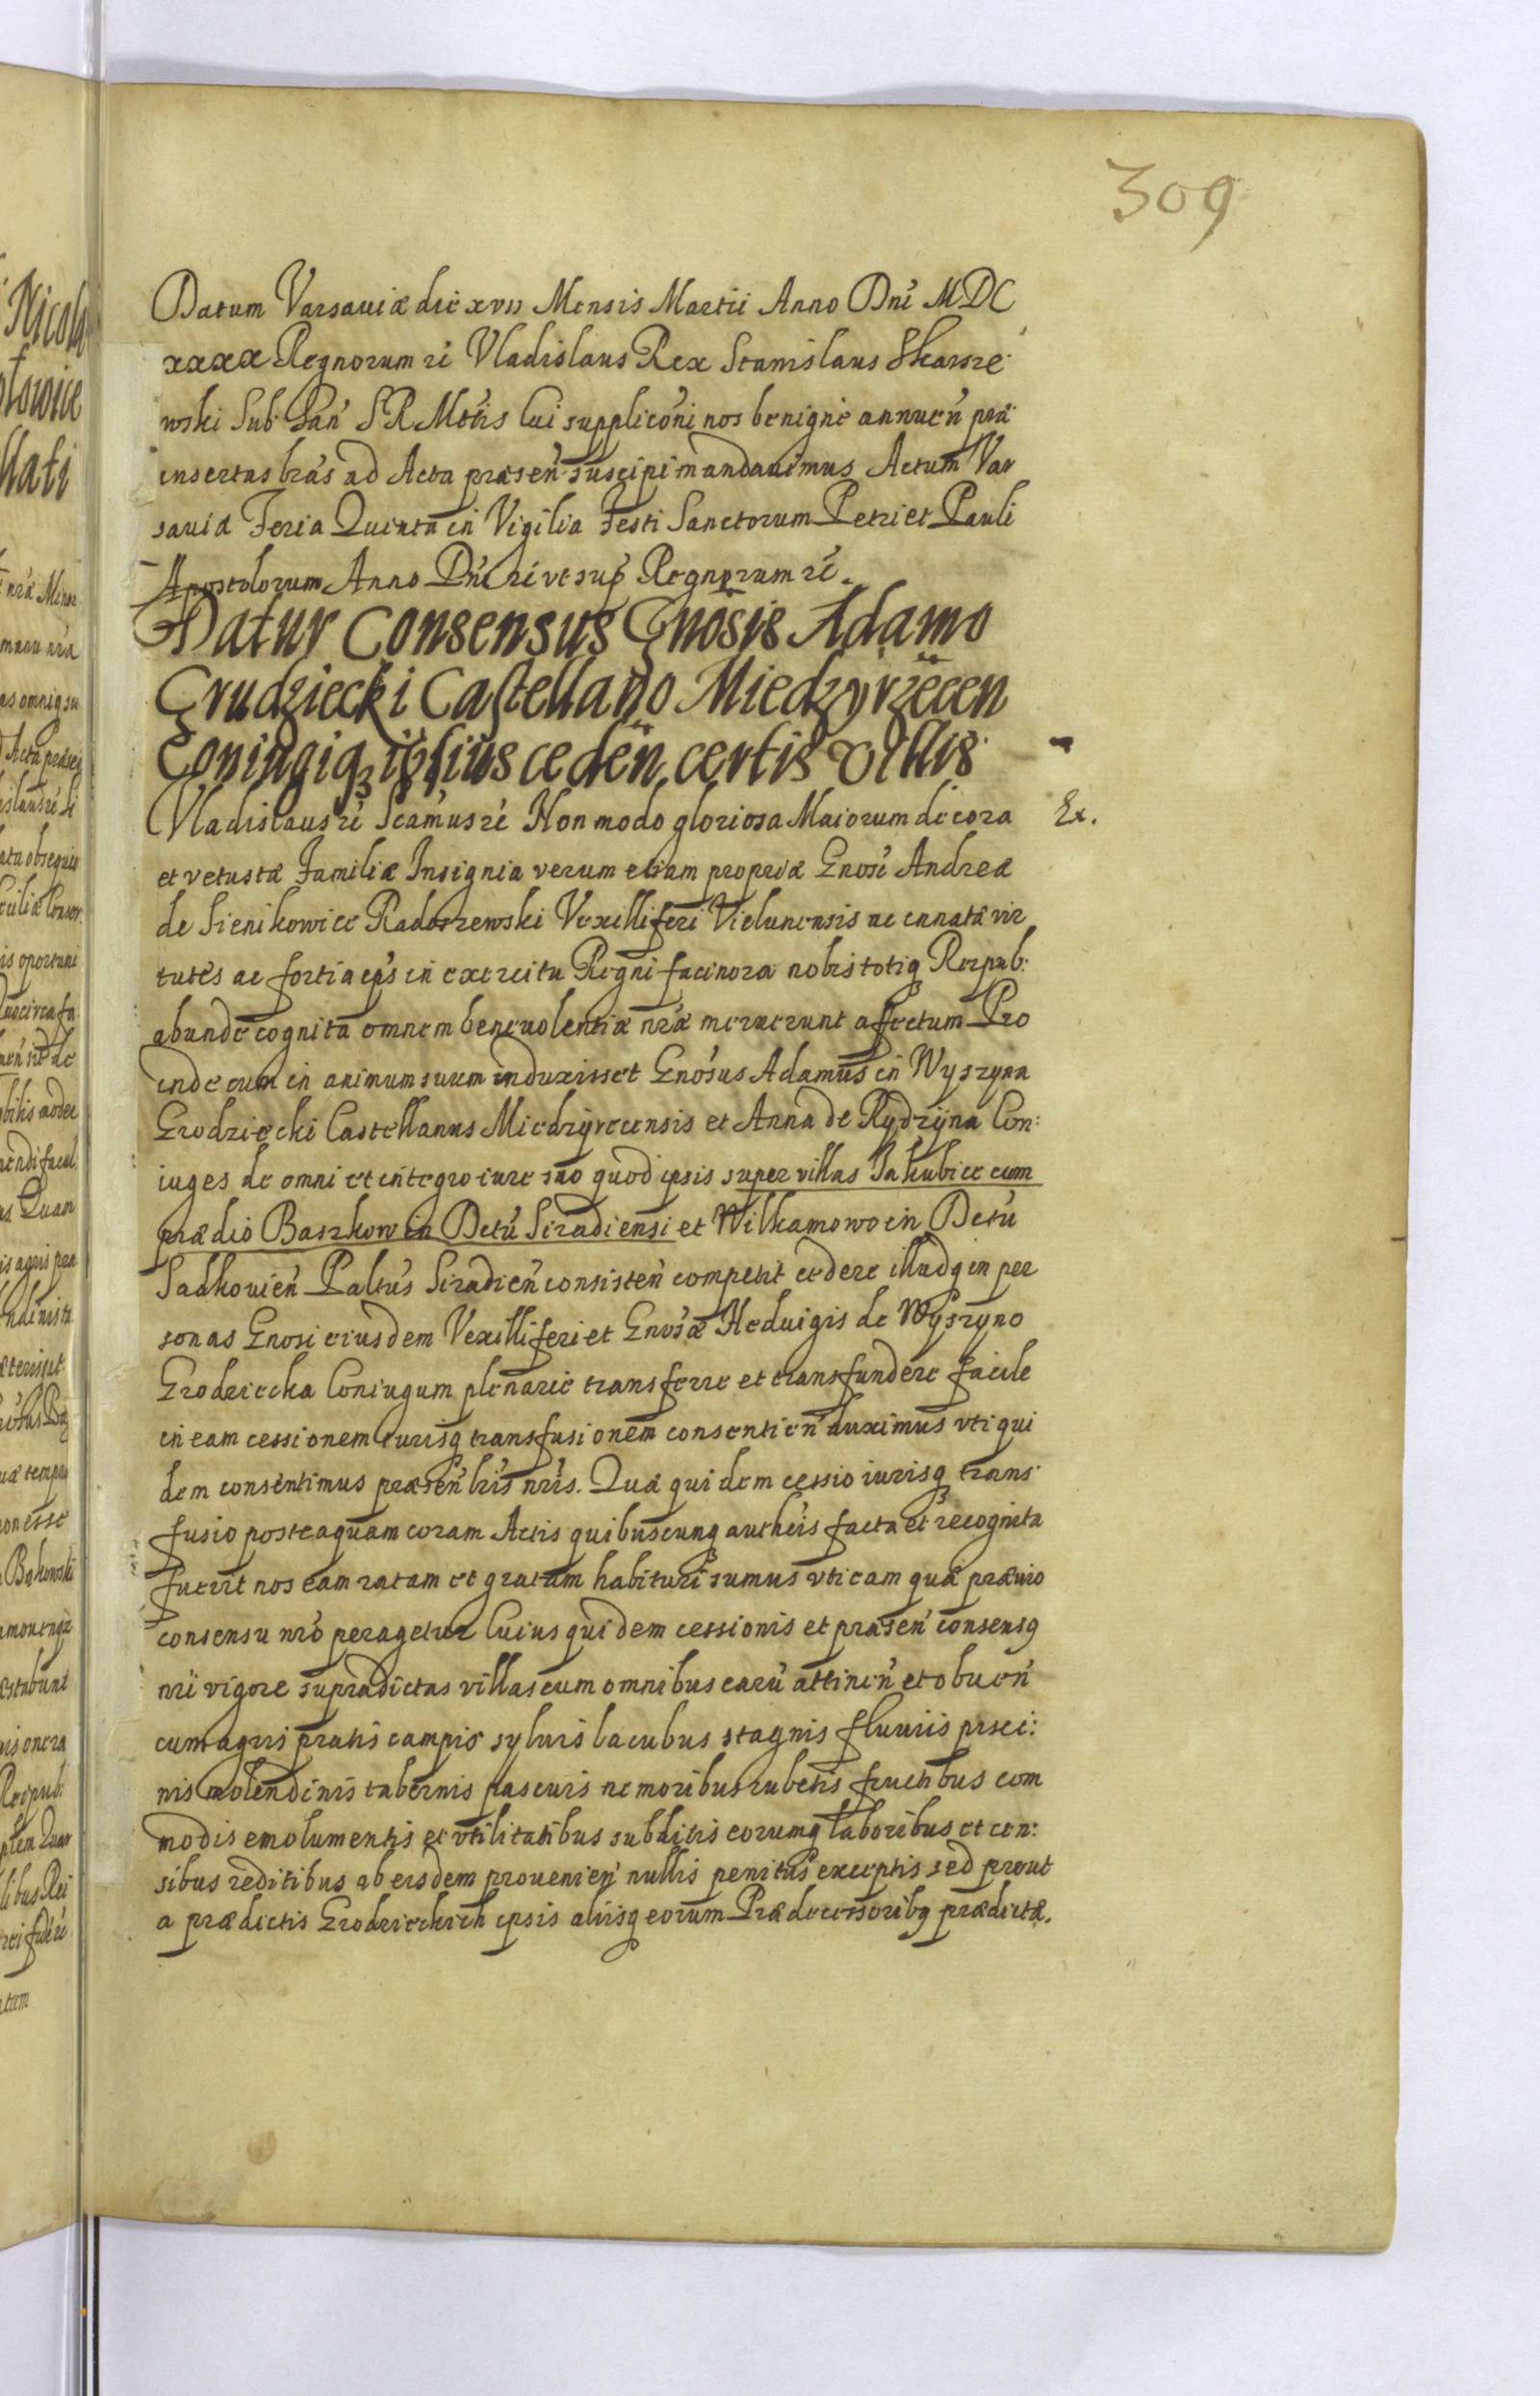 309
Datum Varsauiæ die xvii Mensis Martii Anno Dni MDC
xxxx Regnorum rē Vladislaus Rex Stanislaus Skarsze
wski Sub: Pań S R Mttis Cui supplicōni nos benigne annueń præ
insertas lrás ad Acta præseń suscipi mandauimus Actum Var
sauiæ Feria Quinta in Vigilia Festi Sanctorum Petri et Pauli
Apostolorum Anno Dni rē vt sup Regnorum rē.
Datur Consensus Gnosis Adamo
Grudziecki Castellano Miedzyrzecen
Coniugiq ipsius cedeń certis Villis
Vladislaus rē Scamus rē Non modo gloriosa Maiorum decora
Ex.
et vetustæ Familiæ Insignia verum etiam propriæ Gnosi Andreæ
de Sienikowice Radoszewski Vexilliferi Vielunensis ac innatæ vir
tutes ac fortia eps in exercitu Regni facinora nobis totiq Reipub:
abunde cognita omnem beneuolentiæ nræ meruerunt affectum Pro
inde cum in animum suum induxisset Gnosus Adamus in Wyszyna
Grodziecki Castellanus Miedzyrecensis et Anna de Rydzyna Con:
iuges de omni et integro iure suo quod ipsis super villas Jakubice cum
prædio Baszkow in Dctu Siradiensi et Wilkamowo in Dctu
Sadkouień Paltus Siradień consisteń competit cedere illudq in per
sonas Gnosi eiusdem Vexilliferi et Gnosæ Heduigis de Wyszyno
Grodziecka Coniugum plenarie transferre et transfundere facile
in eam cessionem iurisq transfusionem consentień duximus vti qui
dem consentimus præseń lris nris. Quæ quidem cessio iurisq trans
fusio posteaquam coram Actis quibuscunq autheis facta et recognita
fuerit nos eam ratam et gratam habituri sumus vti eam quæ præuio
consensu nro peragetur Cuius quidem cessionis et præseń consensq
nri vigore supradictas villas cum omnibus earū attineń et obueń
cum agris pratis campis syluis lacubus stagnis fluuiis pisci:
nis molendinis tabernis pascuis nemoribus rubetis fructibus com
modis emolumentis et vtilitatibus subditis eorumq laboribus et cen:
sibus reditibus ab eisdem prouenień nullis penitus exceptis sed prout
a prædictis Grodzieckich ipsis aliisq eorum Prædecessoribq prædictæ.